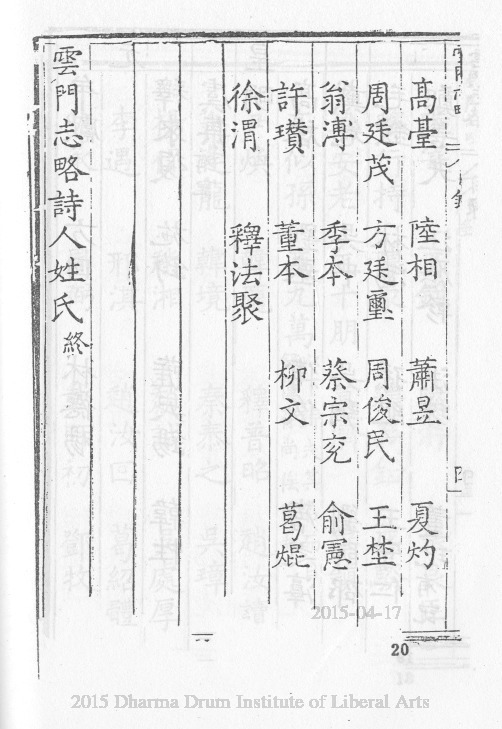 高臺 陸相 蕭昱 夏灼
周廷茂 方廷璽 周俊民 王埜
翁溥 季本 蔡宗兗 俞憲
許瓚 董本 柳文 葛焜
徐渭 釋法聚
雲門志略詩人姓氏終
20
2015-04-17
2015 Dharma Drum Institute of Liberal Arts